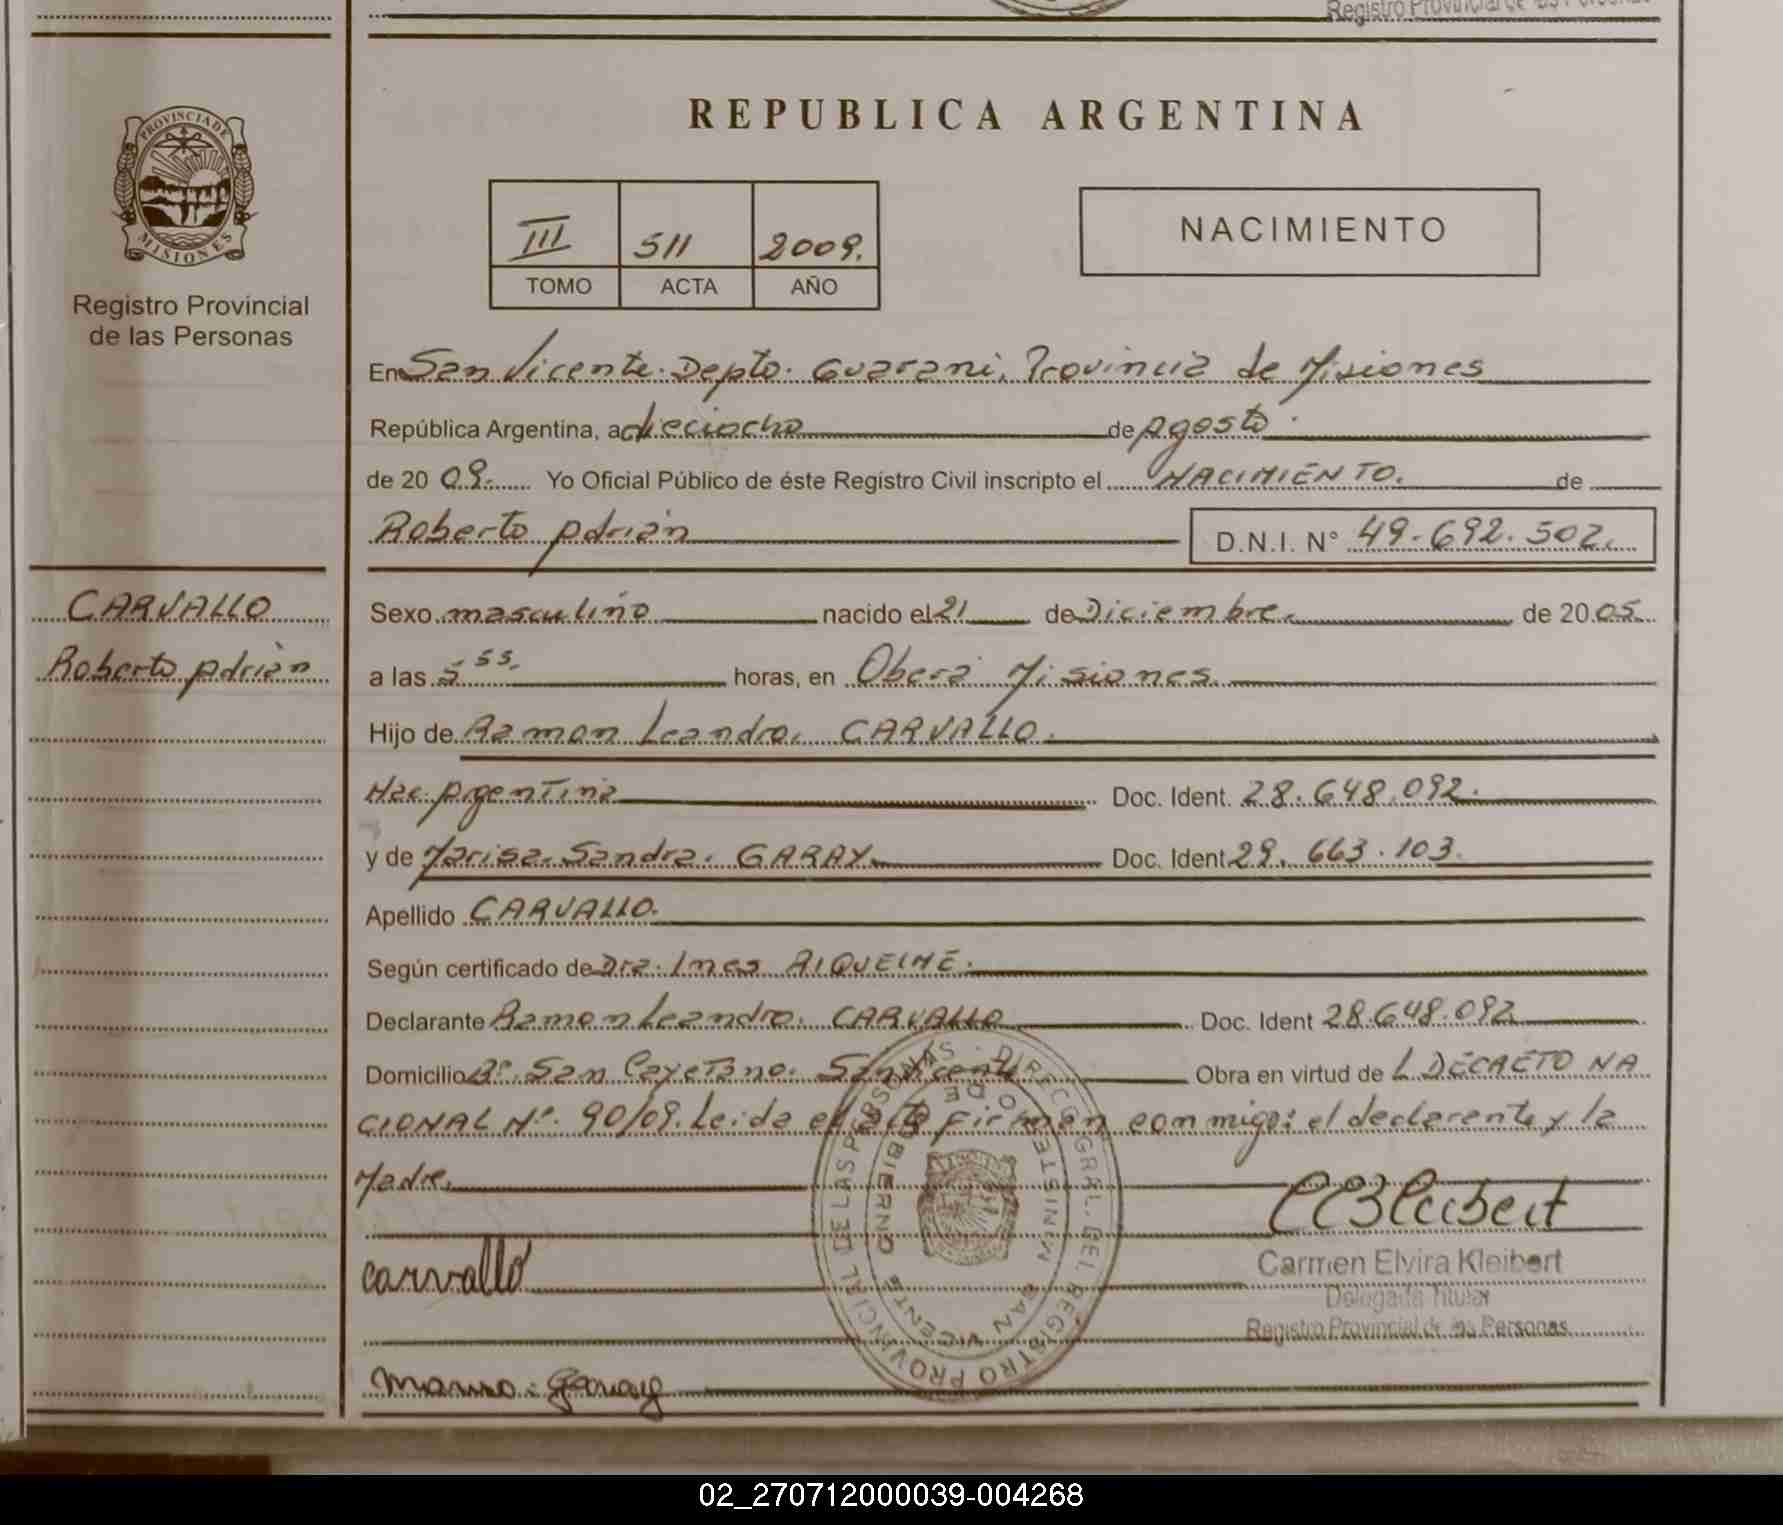 Registro Provincial de las Personas
REPUBLICA ARGENTINA
PROVINCIA DE
MISIONES
Registro Provincial
de las Personas
III 511 2009.
TOMO ACTA AÑO
NACIMIENTO
En San Vicente. Depto. Guarani, Provincia de Misiones
República Argentina, a dieciocho de Agosto
de 20 09. Yo Oficial Público de éste Registro Civil inscripto el NACIMIENTO. de
Roberto Adrián D.N.I. N° 49.692.502.
CARVALLO
Roberto Adrián
Sexo masculino nacido el 21 de Diciembre. de 20 05.
a las 5 55. horas, en Oberá Misiones.
Hijo de Ramon Leandro. CARVALLO.
Nac. Argentina Doc. Ident. 28.648.092.
y de Marisa. Sandra. GARAY. Doc. Ident 29.663.103.
Apellido CARVALLO.
Según certificado de Dra. Ines RIQUELME.
Declarante Ramon Leandro. CARVALLO Doc. Ident 28.648.092
Domicilio B°. San Cayetano. San Vicente Obra en virtud de L DECRETO NA
CIONAL N°. 90/09. Leida el acta firman conmigo: el declarante y la
Madre.
DIRECC. GRAL. DEL REGISTRO PROVINCIAL DE LAS PERSONAS
SAN VICENTE
carvallo
Carmen Elvira Kleibert
Delegada Titular
Registro Provincial de las Personas
Garay
02_270712000039-004268